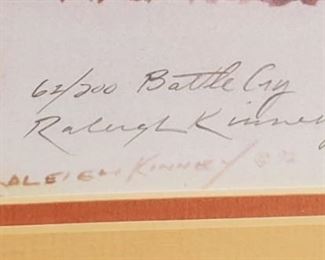 62/200 Battle Cry
Raleigh Kinney
ALEIGH KINNEY 82